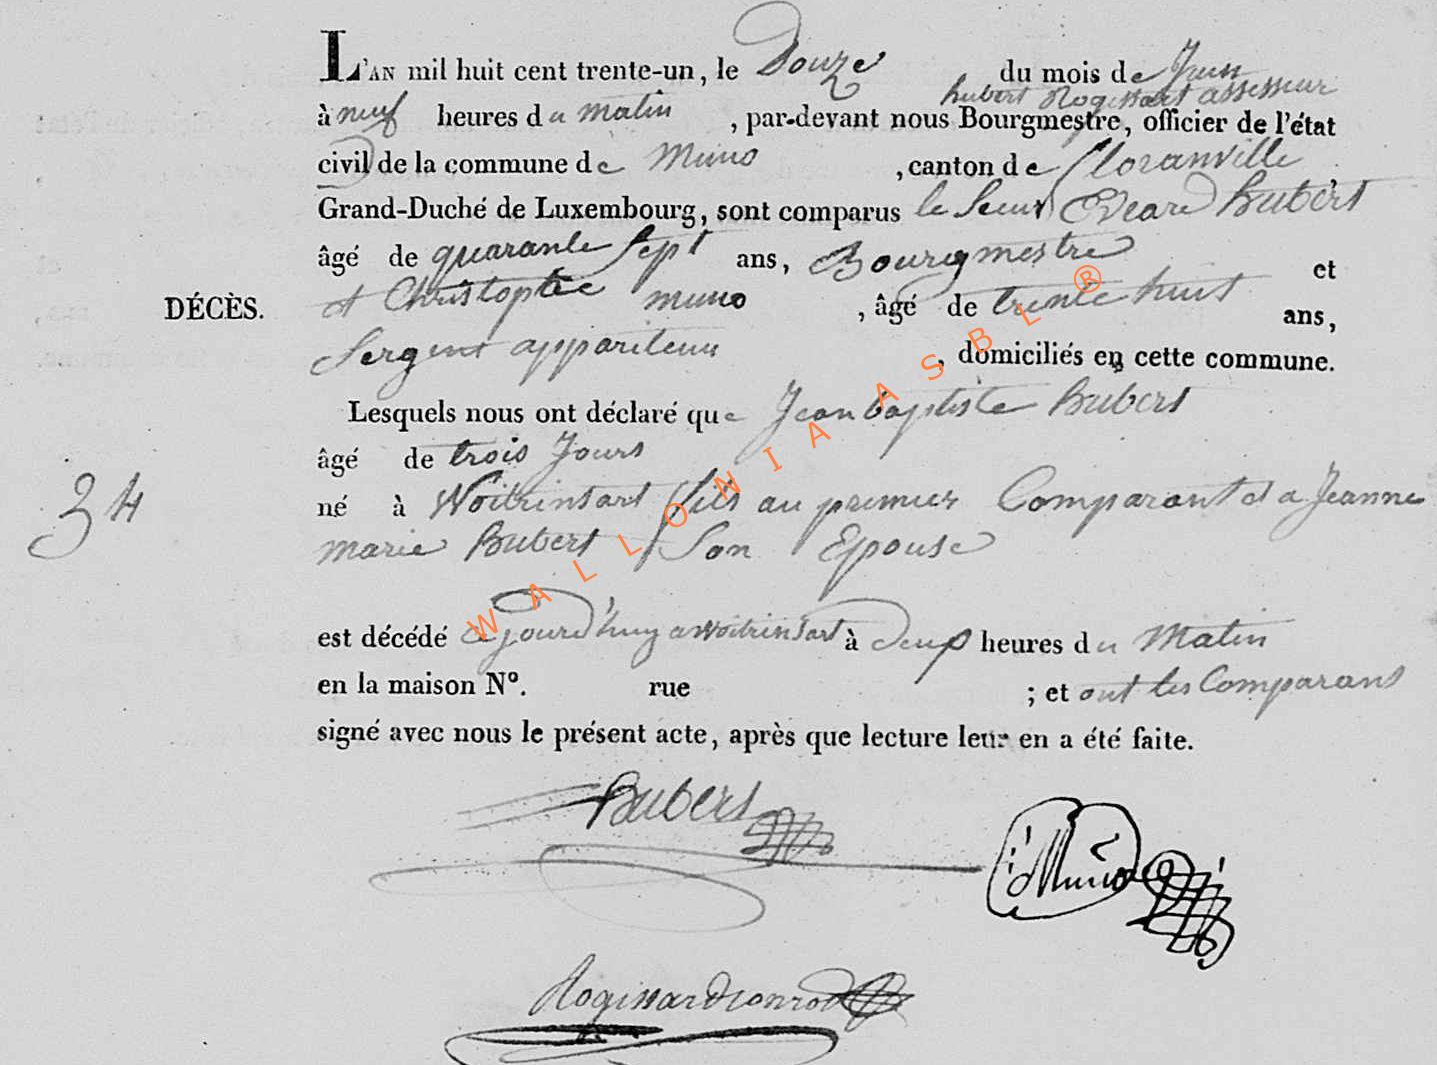 L'AN mil huit cent trente-un, le Douze du mois de Juin
hubert Rogissart assesseur
à neuf heures du matin, par-devant nous Bourgmestre, officier de l'état
civil de la commune de Muno, canton de floranville
Grand-Duché de Luxembourg, sont comparus le Sieur Edeard Hubert
âgé de quarante Sept ans, Bourgmestre et
et Christophe muno, âgé de trente huit ans,
DÉCÈS.
Sergent appariteur, domiciliés en cette commune.
Lesquels nous ont déclaré que Jean baptiste Hubert
âgé de trois Jours
34
né à Woitrinsart fils au premier Comparant et a Jeanne
marie Hubert Son Epouse
est décédé ajourd'huy a Woitrinsart à deux heures du Matin
en la maison Nº. rue ; et ont les Comparans
signé avec nous le présent acte, après que lecture leur en a été faite.
Hubert
Muno
WALLONIA ASBL ®